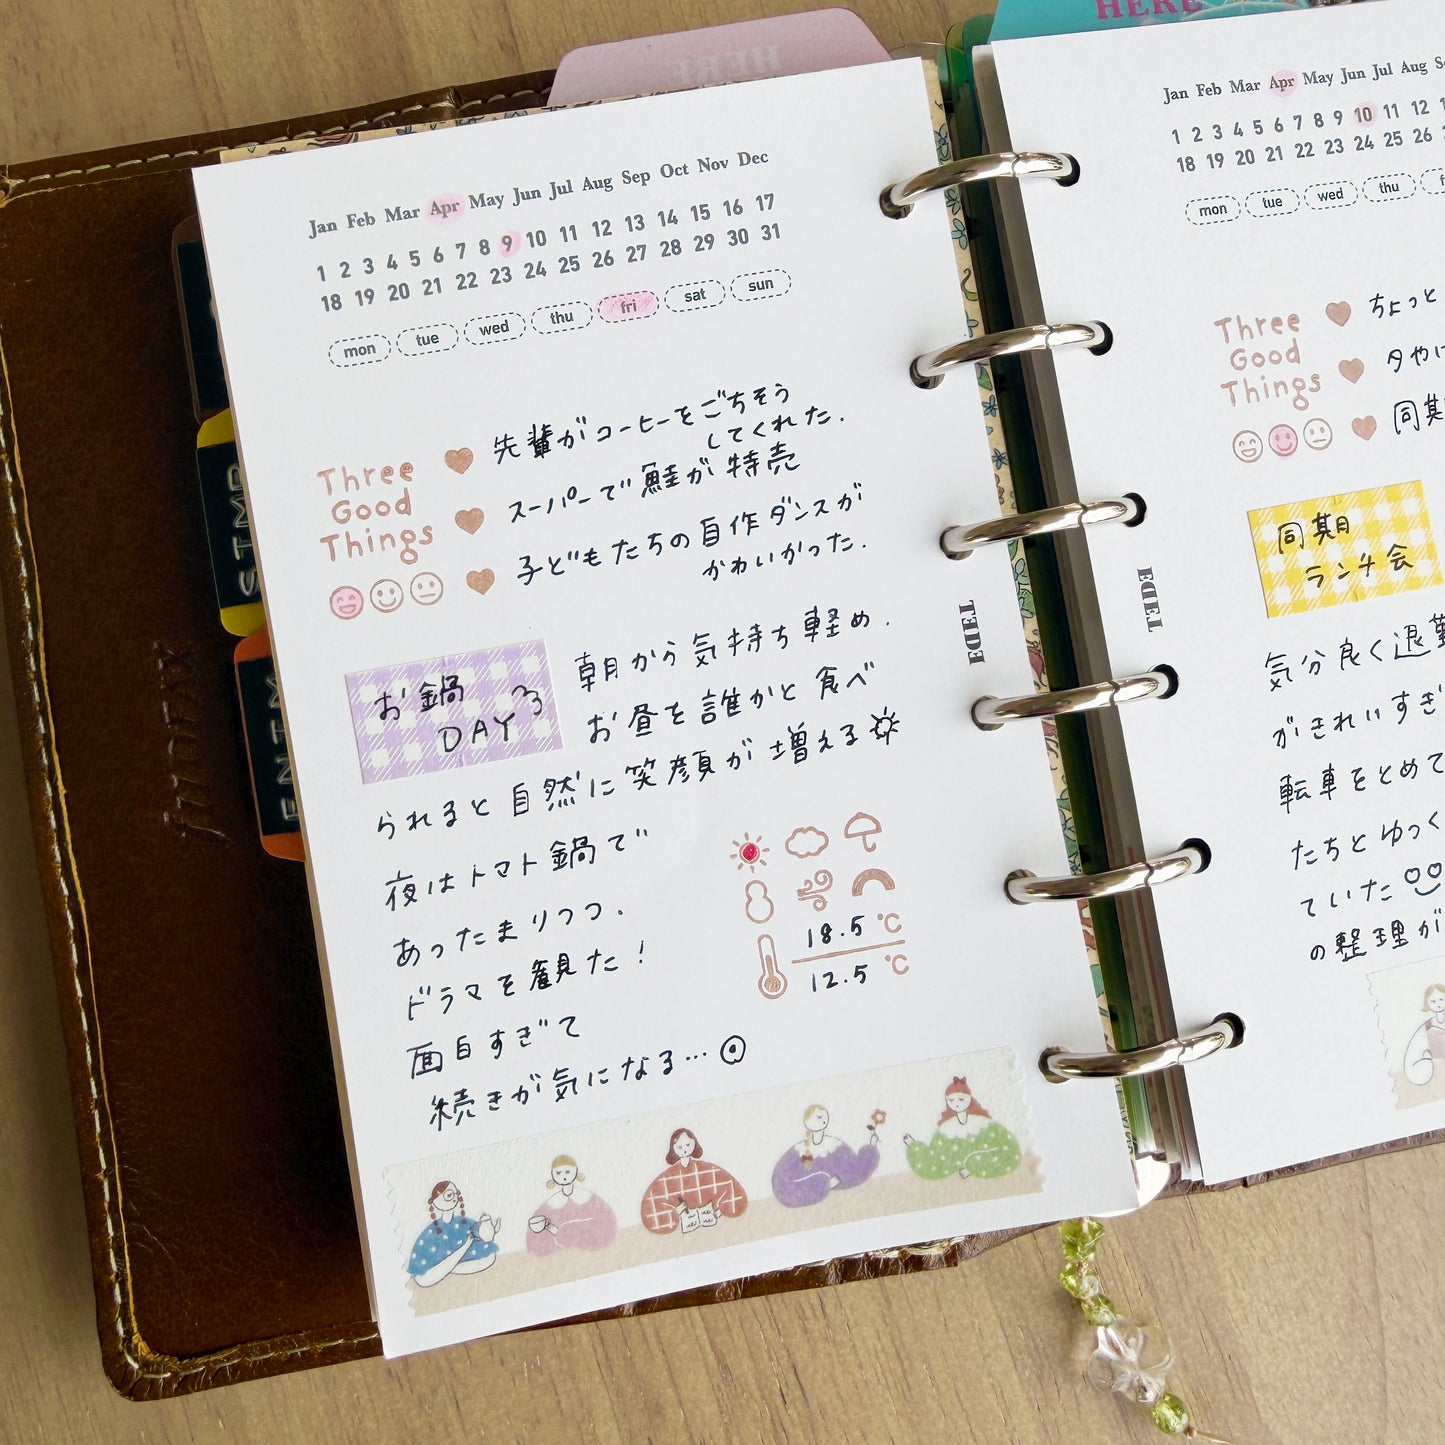 HERE
Jan Feb Mar Apr May Jun Jul Aug Sep Oct Nov Dec
1 2 3 4 5 6 7 8 9 10 11 12 13 14 15 16 17
18 19 20 21 22 23 24 25 26 27 28 29 30 31
mon tue wed thu fri sat sun
Three
Good
Things
先輩がコーヒーをごちそう
してくれた.
スーパーで鮭が特売
子どもたちの自作ダンスが
かわいかった.
お鍋
DAY
朝から気持ち軽め.
お昼を誰かと食べ
られると自然に笑顔が増える
夜はトマト鍋で
あったまりつつ、
ドラマを観た!
面白すぎて
続きが気になる…
18.5 ℃
12.5 ℃
EDET
HERE
Jan Feb Mar Apr May Jun Jul Aug
1 2 3 4 5 6 7 8 9 10 11 12
18 19 20 21 22 23 24 25 26
mon tue wed thu
Three
Good
Things
ちょっと
夕やけ
同期
同期
ランチ会
気分良く退勤
がきれいすぎ
転車をとめて
たちとゆっく
ていた
の整理が
EDET